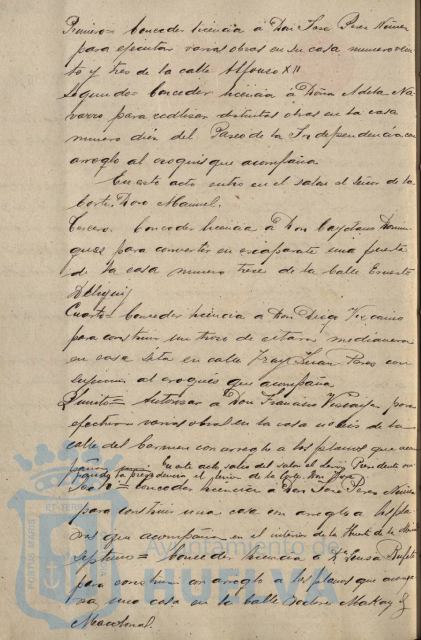 Primero= Conceder licencia á Don José Perez Nuñez
para ejecutar varias obras en su casa numero vein
te y tres de la calle Alfonso XII
Segundo= Conceder licencia á Doña Adela Na
varro para realizar distintas obras en la casa
numero diez del Paseo de la Independencia con
arreglo al croquis que acompaña
En este acto entró en el salon el Señor de la
Corte, Don Manuel.
Tercero= Conceder licencia á Don Cayetano Domin
guez para convertir en escaparate una puerta
de la casa numero trece de la Calle Ernesto
Deligny
Cuarto= Conceder licencia á Don Diego Vizcaino
para construir un trozo de citara medianera
en casa sita en calle Fray Juan Perez con
sujecion al croquis que acompaña
Quinto= Autorizar á Don Francisco Vizcaya para
efectuar varias obras en la casa de la
calle del Carmen con arreglo a los planos que acom
paña En este acto salio del salon el Señor Presidente
la presidencia el Señor de la Corte, Don José
Sexto= Conceder licencia á Don José Perez Nuñez
para construir una casa con arreglo a los pla
nos que acompaña en el interior de la Huerta de la
Septimo= Conceder licencia á Dª Luisa
para construir con arreglo a los planos que acompa
ña, una casa en la calle Doctor Mackay
Macdonal.
PORTUS MARIS
ET TERRAE
Ayuntamiento de
HUELVA